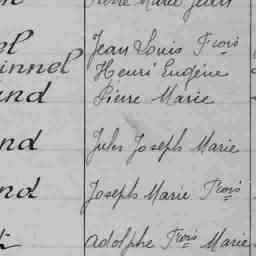 Pierre Marie Jean
el Jean Louis Frois
innel Henri Eugène
and Pierre Marie
nd Jules Joseph Marie
nd Joseph Marie Frois
Adolphe Frois Marie